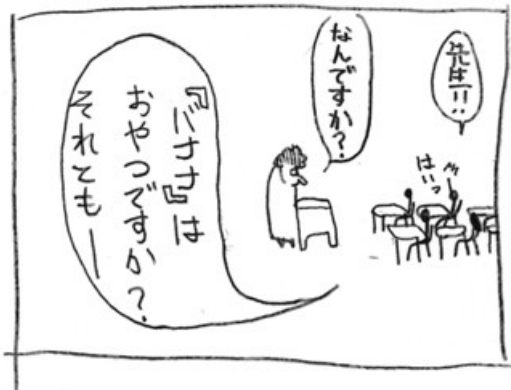 先生!!
はいっ
なんですか?
『バナナ』は
おやつですか?
それともー